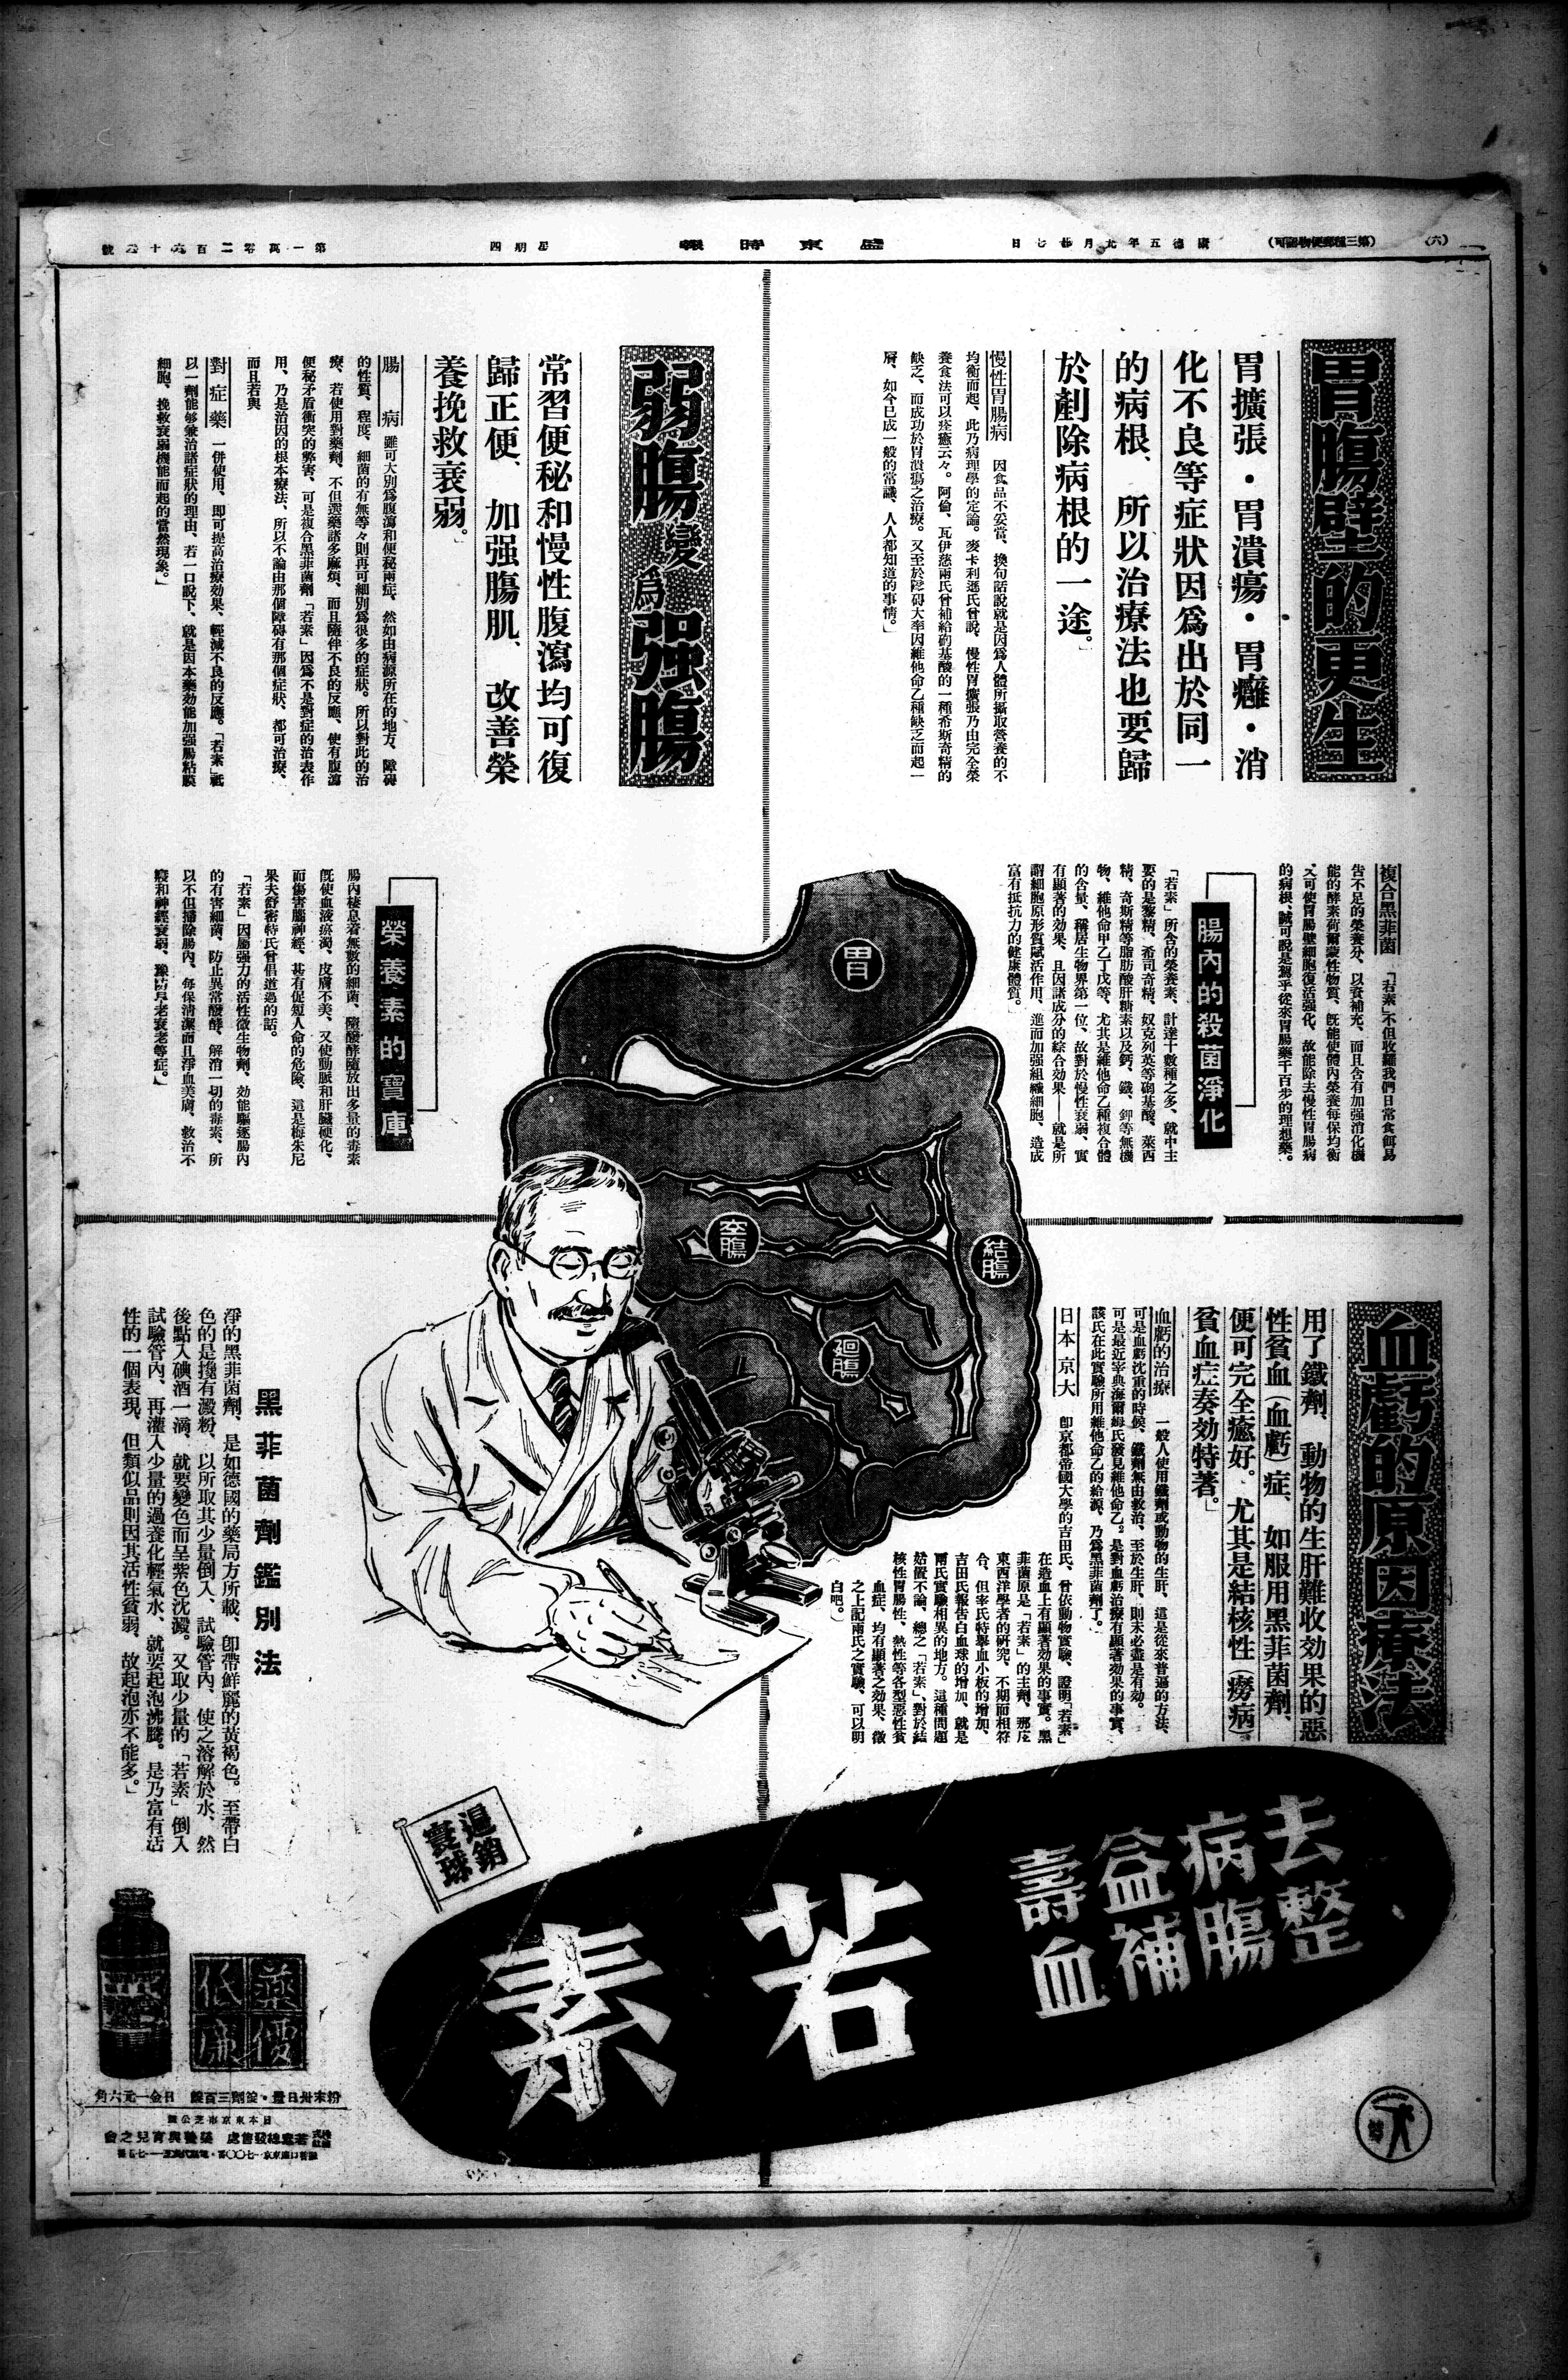 (六)
(第三種郵便物認可)
康德五年九月廿七日
盛京時報
星期四
第一萬零二百六十三號
胃腸壁的更生
胃擴張・胃潰瘍・胃癰・消
化不良等症狀因爲出於同一
的病根、所以治療法也要歸
於剷除病根的一途。
慢性胃腸病 因食品不妥當、換句話說就是因爲人體所攝取營養的不
均衡而起、此乃病理學的定論。麥卡利遜氏曾說、慢性胃擴張乃由完全榮
養食法可以痊癒云々。阿倫、瓦伊慈兩氏曾補給砲基酸的一種希斯奇精的
缺乏、而成功於胃潰瘍之治療。又至於障碍大率因維他命乙種缺乏而起一
層、如今已成一般的常識、人人都知道的事情。
複合黑菲菌 「若素」不但收羅我們日常食餌易
告不足的榮養分、以資補充、而且含有加强消化機
能的酵素荷爾蒙性物質、既能使體內榮養每保均衡
又可使胃腸壁細胞復活强化、故能除去慢性胃腸病
的病根、誠可說是駕乎從來胃腸藥千百步的理想藥。
腸內的殺菌淨化
「若素」所含的榮養素、計達十數種之多、就中主
要的是黎精、希司奇精、奴克列英等砲基酸、萊西
精、奇斯精等脂肪酸肝糖素以及鈣、鐵、鉀等無機
物、維他命甲乙丁戊等、尤其是維他命乙種複合體
的含量、稱居生物界第一位、故對於慢性衰弱、實
有顯著的効果、且因諸成分的綜合効果——就是所
謂細胞原形質賦活作用、進而加强組織細胞、造成
富有抵抗力的健康體質。
弱腸變爲强腸
常習便秘和慢性腹瀉均可復
歸正便、加强腸肌、改善榮
養挽救衰弱。
腸病 雖可大別爲腹瀉和便秘兩症、然如由病源所在的地方、障碍
的性質、程度、細菌的有無等々則再可細別爲很多的症狀。所以對此的治
療、若使用對藥劑、不但選藥諸多麻煩、而且隨伴不良的反應、使有腹瀉
便秘矛盾衝突的弊害、可是複合黑菲菌劑「若素」因爲不是對症的治表作
用、乃是治因的根本療法、所以不論由那個障碍有那個症狀、都可治療、
而且若與
對症藥 一併使用、即可提高治療効果、輕減不良的反應。「若素」祗
以一劑能够兼治諸症狀的理由、若一口說下、就是因本藥効能加强腸粘膜
細胞、挽救衰弱機能而起的當然現象。
榮養素的寶庫
腸內棲息着無數的細菌、隨醱酵隨放出多量的毒素
既使血液瘀濁、皮膚不美、又使動脈和肝臟硬化、
而傷害腦神經、甚有促短人命的危險、這是梅朱尼
果夫舒密特氏曾倡道過的話。
「若素」因屬强力的活性微生物劑、効能驅逐腸內
的有害細菌、防止異常醱酵、解消一切的毒素、所
以不但掃除腸內、每保清潔而且淨血美膚、救治不
寢和神經衰弱、豫防早老衰老等症。
胃
空腸
結腸
迴腸
血虧的原因療法
用了鐵劑、動物的生肝難收効果的惡
性貧血(血虧)症、如服用黑菲菌劑、
便可完全癒好。尤其是結核性(癆病)
貧血症奏効特著。
血虧的治療 一般人使用鐵劑或動物的生肝、這是從來普遍的方法、
可是血虧沈重的時候、鐵劑無由救治、至於生肝、則未必盡是有効。
可是最近宰典海爾姆氏發見維他命乙。是對血虧治療有顯著効果的事實、
該氏在此實驗所用維他命乙的給源、乃爲黑菲菌劑了。
日本京大 卽京都帝國大學的吉田氏、曾依動物實驗、證明「若素」
在造血上有顯著効果的事實。黑
菲菌原是「若素」的主劑、那麽
東西洋學者的研究、不期而相符
合、但宰氏特擧血小板的增加、
吉田氏報告白血球的增加、就是
兩氏實驗相異的地方。這種問題
姑置不論、總之「若素」、對於結
核性胃腸性、熱性等各型惡性貧
血症、均有顯著之効果、徵
之上記兩氏之實驗、可以明
白吧。)
黑菲菌劑鑑別法
淨的黑菲菌劑、是如德國的藥局方所載、卽帶鮮麗的黃褐色。至帶白
色的是攙有澱粉、以所取其少量倒入、試驗管內、使之溶解於水、然
後點入碘酒一滴、就要變色而呈紫色沈澱。又取少量的「若素」倒入
試驗管內、再灌入少量的過養化輕氣水、就要起泡沸騰。是乃富有活
性的一個表現、但類似品則因其活性貧弱、故起泡亦不能多。
暢銷
寰球
去病益壽
整腸補血
若素
藥價
低廉
粉末卅日量・錠劑三百錠 日金一元六角
日本東京市芝公園
株式會社 若素總發售處 榮養與育兒之會